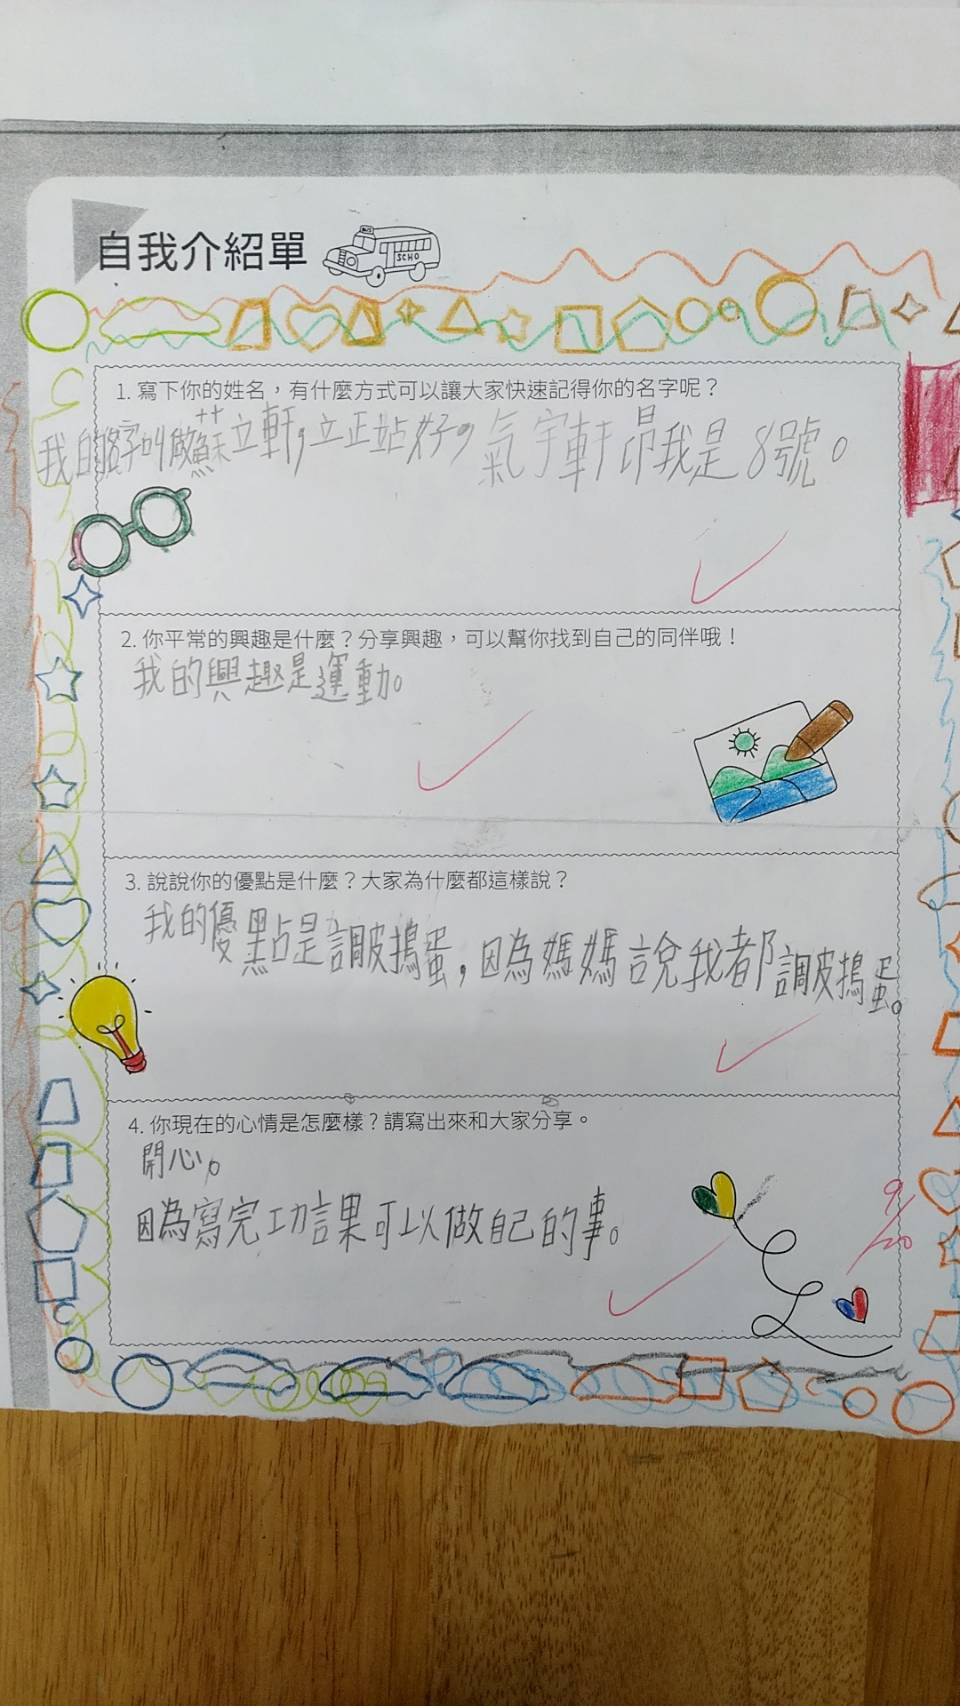 自我介紹單
BUS
SCHO
1. 寫下你的姓名，有什麼方式可以讓大家快速記得你的名字呢？
我的名字叫做蘇立軒，立正站好，氣宇軒昂我是8號。
2. 你平常的興趣是什麼？分享興趣，可以幫你找到自己的同伴哦！
我的興趣是運動。
3. 說說你的優點是什麼？大家為什麼都這樣說？
我的優點是調皮搗蛋，因為媽媽說我都調皮搗蛋。
4. 你現在的心情是怎麼樣？請寫出來和大家分享。
開心。
因為寫完功課可以做自己的事。
9/20